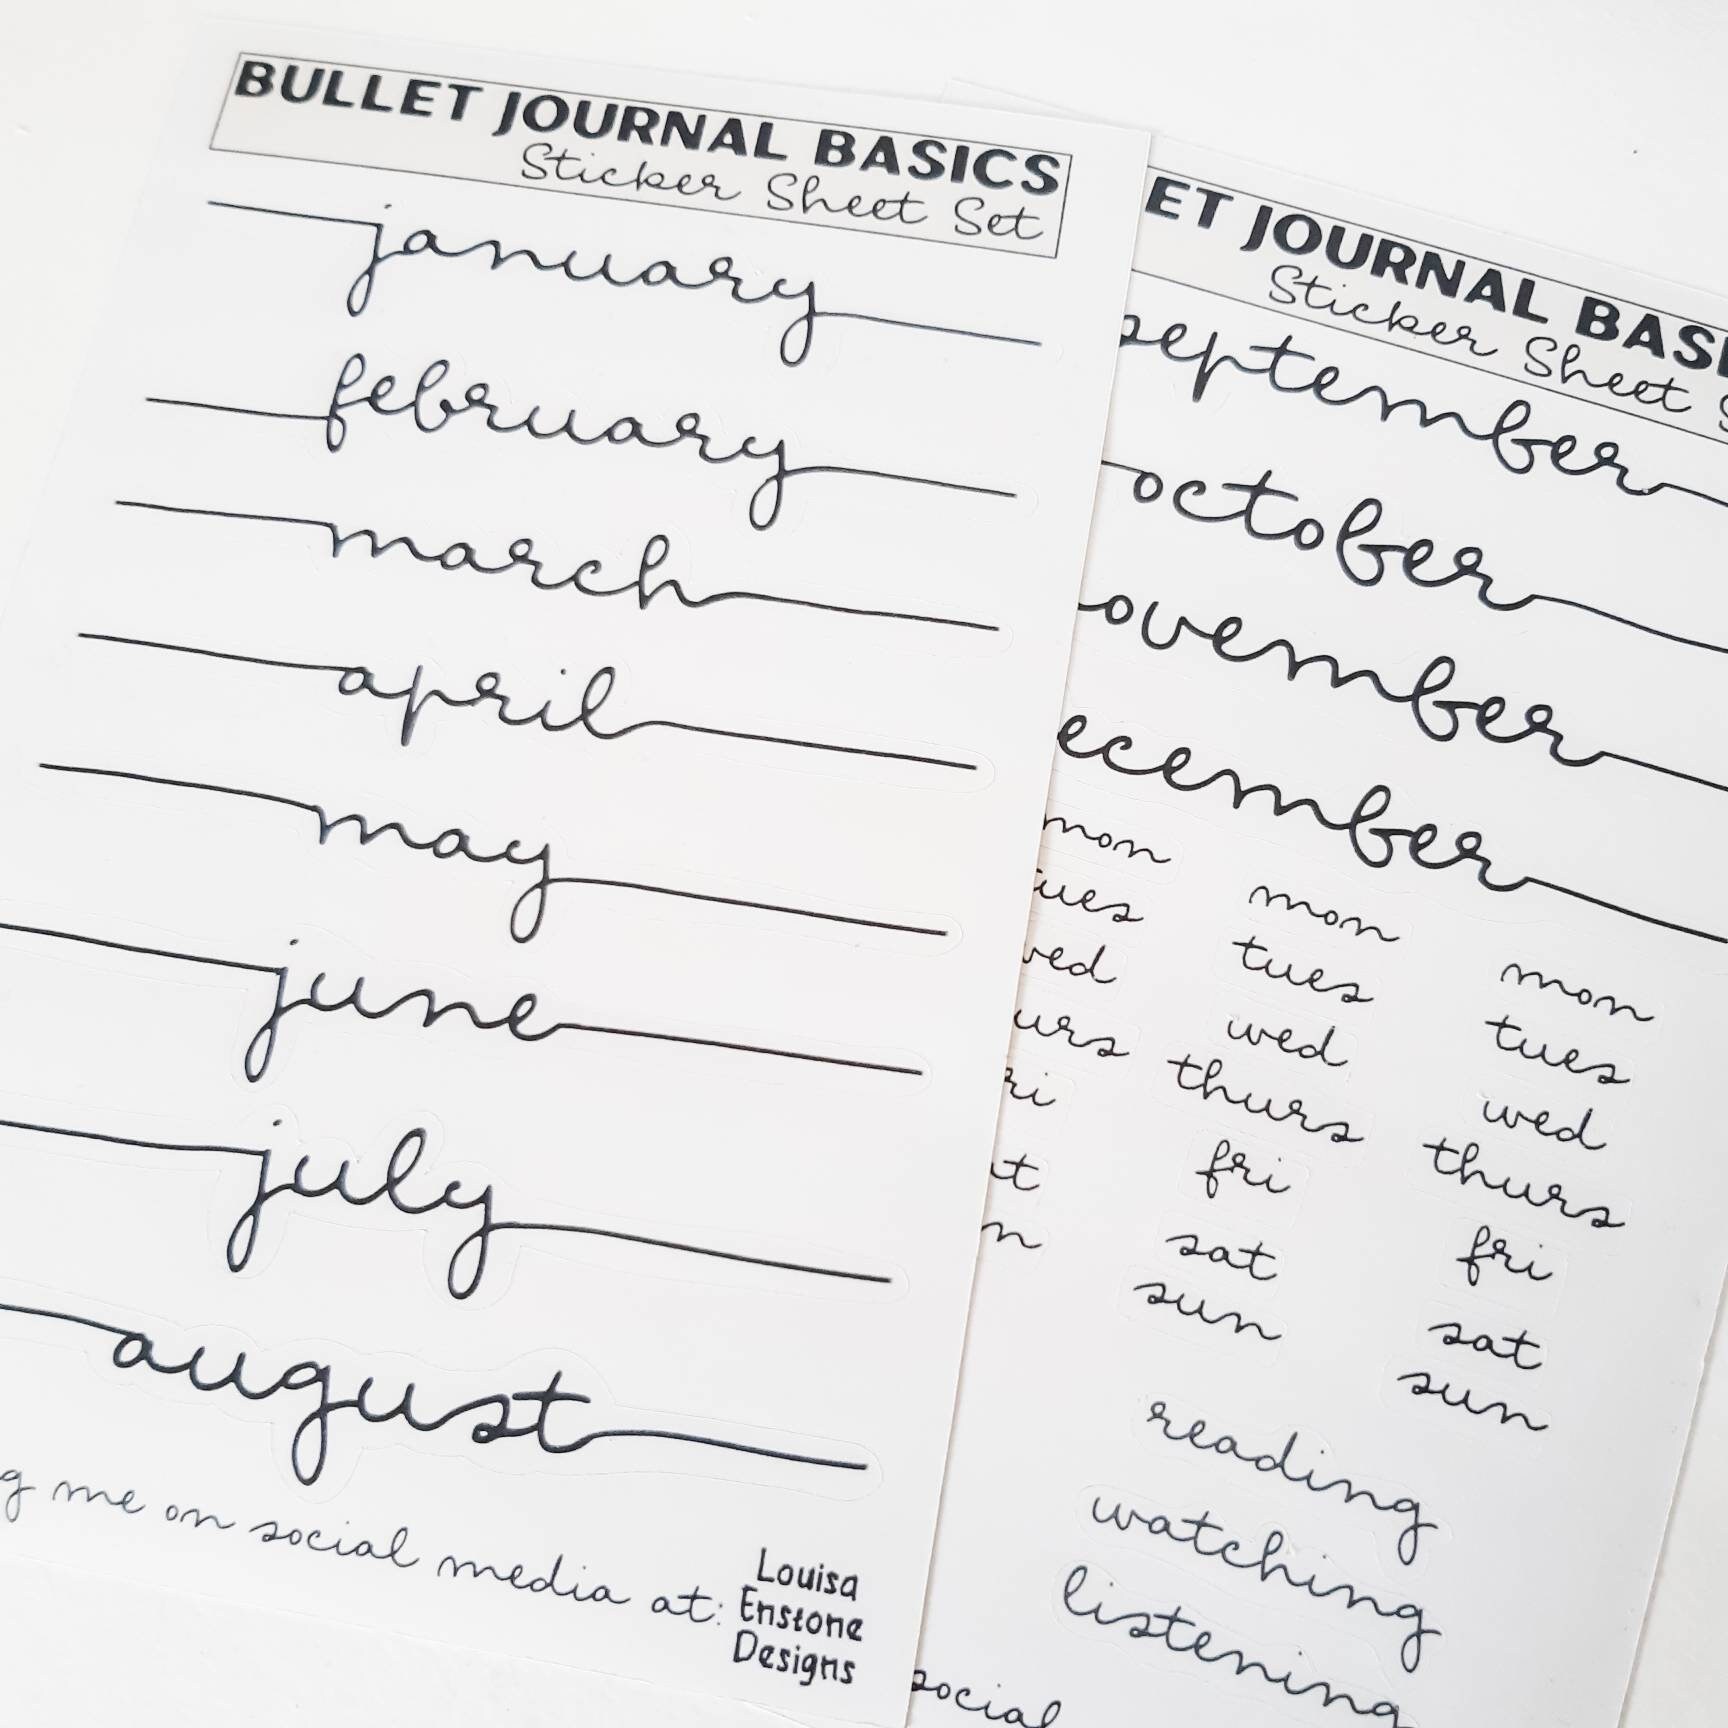 BULLET JOURNAL BASICS
Sticker Sheet Set
january
february
march
april
may
june
july
august
me on social media at:
Louisa
Enstone
Designs
JOURNAL
Sticker Sheet
september
october
mon
tues
wed
thurs
fri
sat
sun
mon
tues
wed
thurs
fri
sat
sun
mon
reading
watching
listening
social